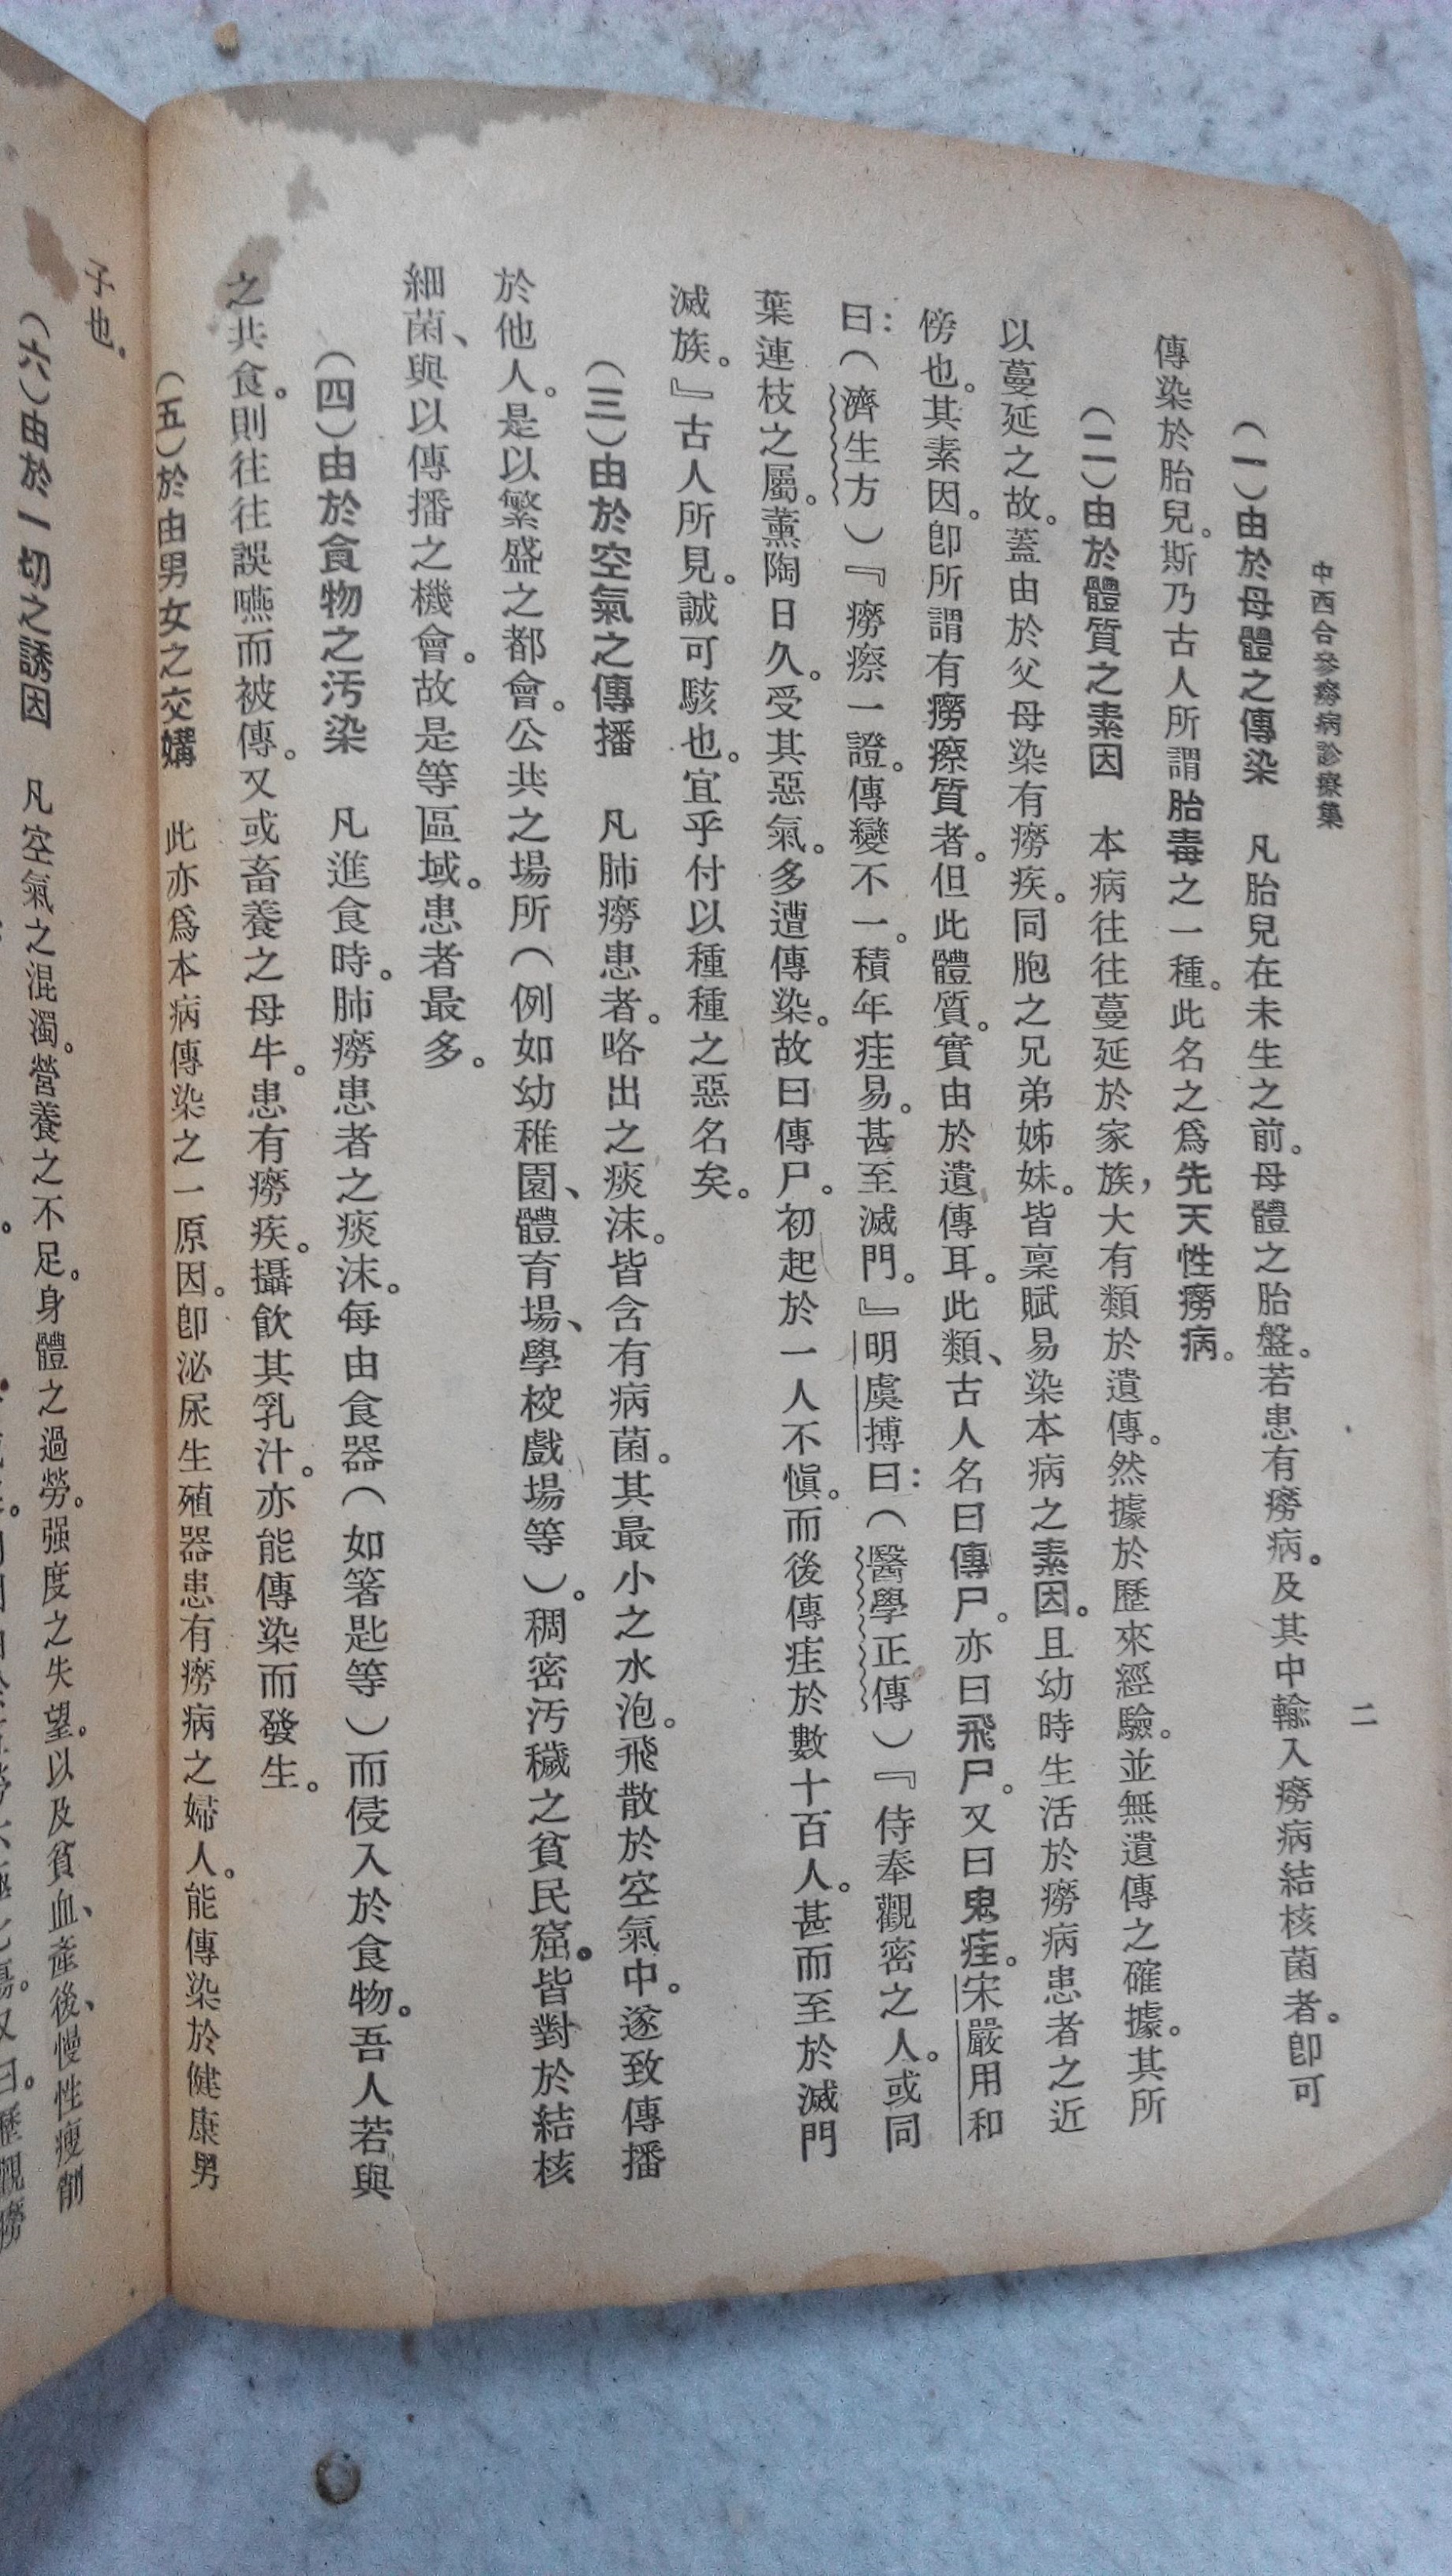 中西合參癆病診療集
二
（一）由於母體之傳染　凡胎兒在未生之前。母體之胎盤。若患有癆病。及其中輸入癆病結核菌者。卽可
傳染於胎兒。斯乃古人所謂胎毒之一種。此名之爲先天性癆病。
（二）由於體質之素因　本病往往蔓延於家族，大有類於遺傳。然據於歷來經驗。並無遺傳之確據。其所
以蔓延之故。蓋由於父母染有癆疾。同胞之兄弟姊妹。皆稟賦易染本病之素因。且幼時生活於癆病患者之近
傍也。其素因。卽所謂有癆瘵質者。但此體質。實由於遺傳耳。此類、古人名曰傳尸。亦曰飛尸。又曰鬼疰。宋嚴用和
曰：（濟生方）『癆瘵一證。傳變不一。積年疰易。甚至滅門。』明虞搏曰：（醫學正傳）『侍奉觀密之人。或同
葉連枝之屬。薰陶日久。受其惡氣。多遭傳染。故曰傳尸。初起於一人不愼。而後傳疰於數十百人。甚而至於滅門
滅族。』古人所見。誠可駭也。宜乎付以種種之惡名矣。
（三）由於空氣之傳播　凡肺癆患者。咯出之痰沫。皆含有病菌。其最小之水泡。飛散於空氣中。遂致傳播
於他人。是以繁盛之都會。公共之場所（例如幼稚園、體育場、學校戲場等）。稠密汚穢之貧民窟。皆對於結核
細菌、與以傳播之機會。故是等區域。患者最多。
（四）由於食物之汚染　凡進食時。肺癆患者之痰沫。每由食器（如箸匙等）而侵入於食物。吾人若與
之共食。則往往誤嚥而被傳。又或畜養之母牛。患有癆疾。攝飮其乳汁。亦能傳染而發生。
（五）於由男女之交媾　此亦爲本病傳染之一原因。卽泌尿生殖器患有癆病之婦人。能傳染於健康男
子也。
（六）由於一切之誘因　凡空氣之混濁。營養之不足。身體之過勞。强度之失望。以及貧血、產後、慢性瘦削